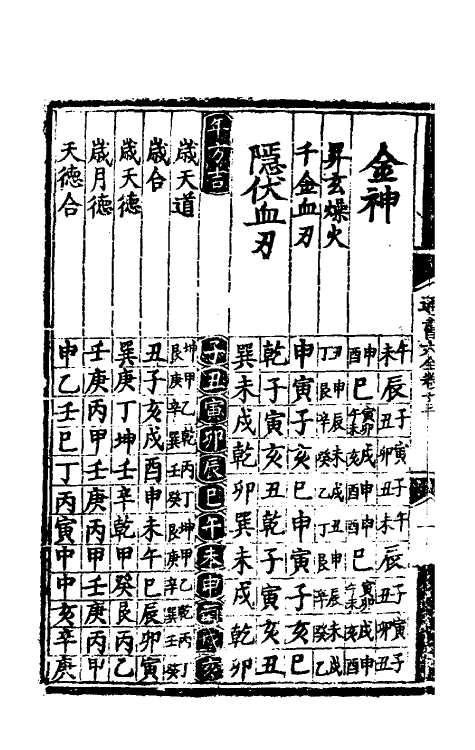 通書大全卷十
金神
午未 辰 子丑 寅卯 子丑 午未 辰 子丑 寅卯 子丑
申酉 巳 寅卯午未 戌亥 申酉 申酉 巳 寅卯午未 戌亥 申酉
昇玄燥火 丑丁 申艮 辰辛 未癸 戌乙 丑丁 申艮 辰辛 未癸 戌乙
千金血刃 申 寅 子 亥 巳 申 寅 子 亥 巳
隱伏血刃
乾 子 寅 亥 丑 乾 子 寅 亥 丑
巽 未 戌 乾 卯 巽 未 戌 乾 卯
年方吉 子 丑 寅 卯 辰 巳 午 未 申 酉 戌 亥
歲天道 坤艮 甲庚 乙辛 乾巽 丙壬 丁癸 坤艮 甲庚 乙辛 乾巽 丙壬 丁癸
歲合 丑 子 亥 戌 酉 申 未 午 巳 辰 卯 寅
歲天德 巽 庚 丁 坤 壬 辛 乾 甲 癸 艮 丙 乙
歲月德 壬 庚 丙 甲 壬 庚 丙 甲 壬 庚 丙 甲
天德合 申 乙 壬 巳 丁 丙 寅 中 中 亥 辛 庚